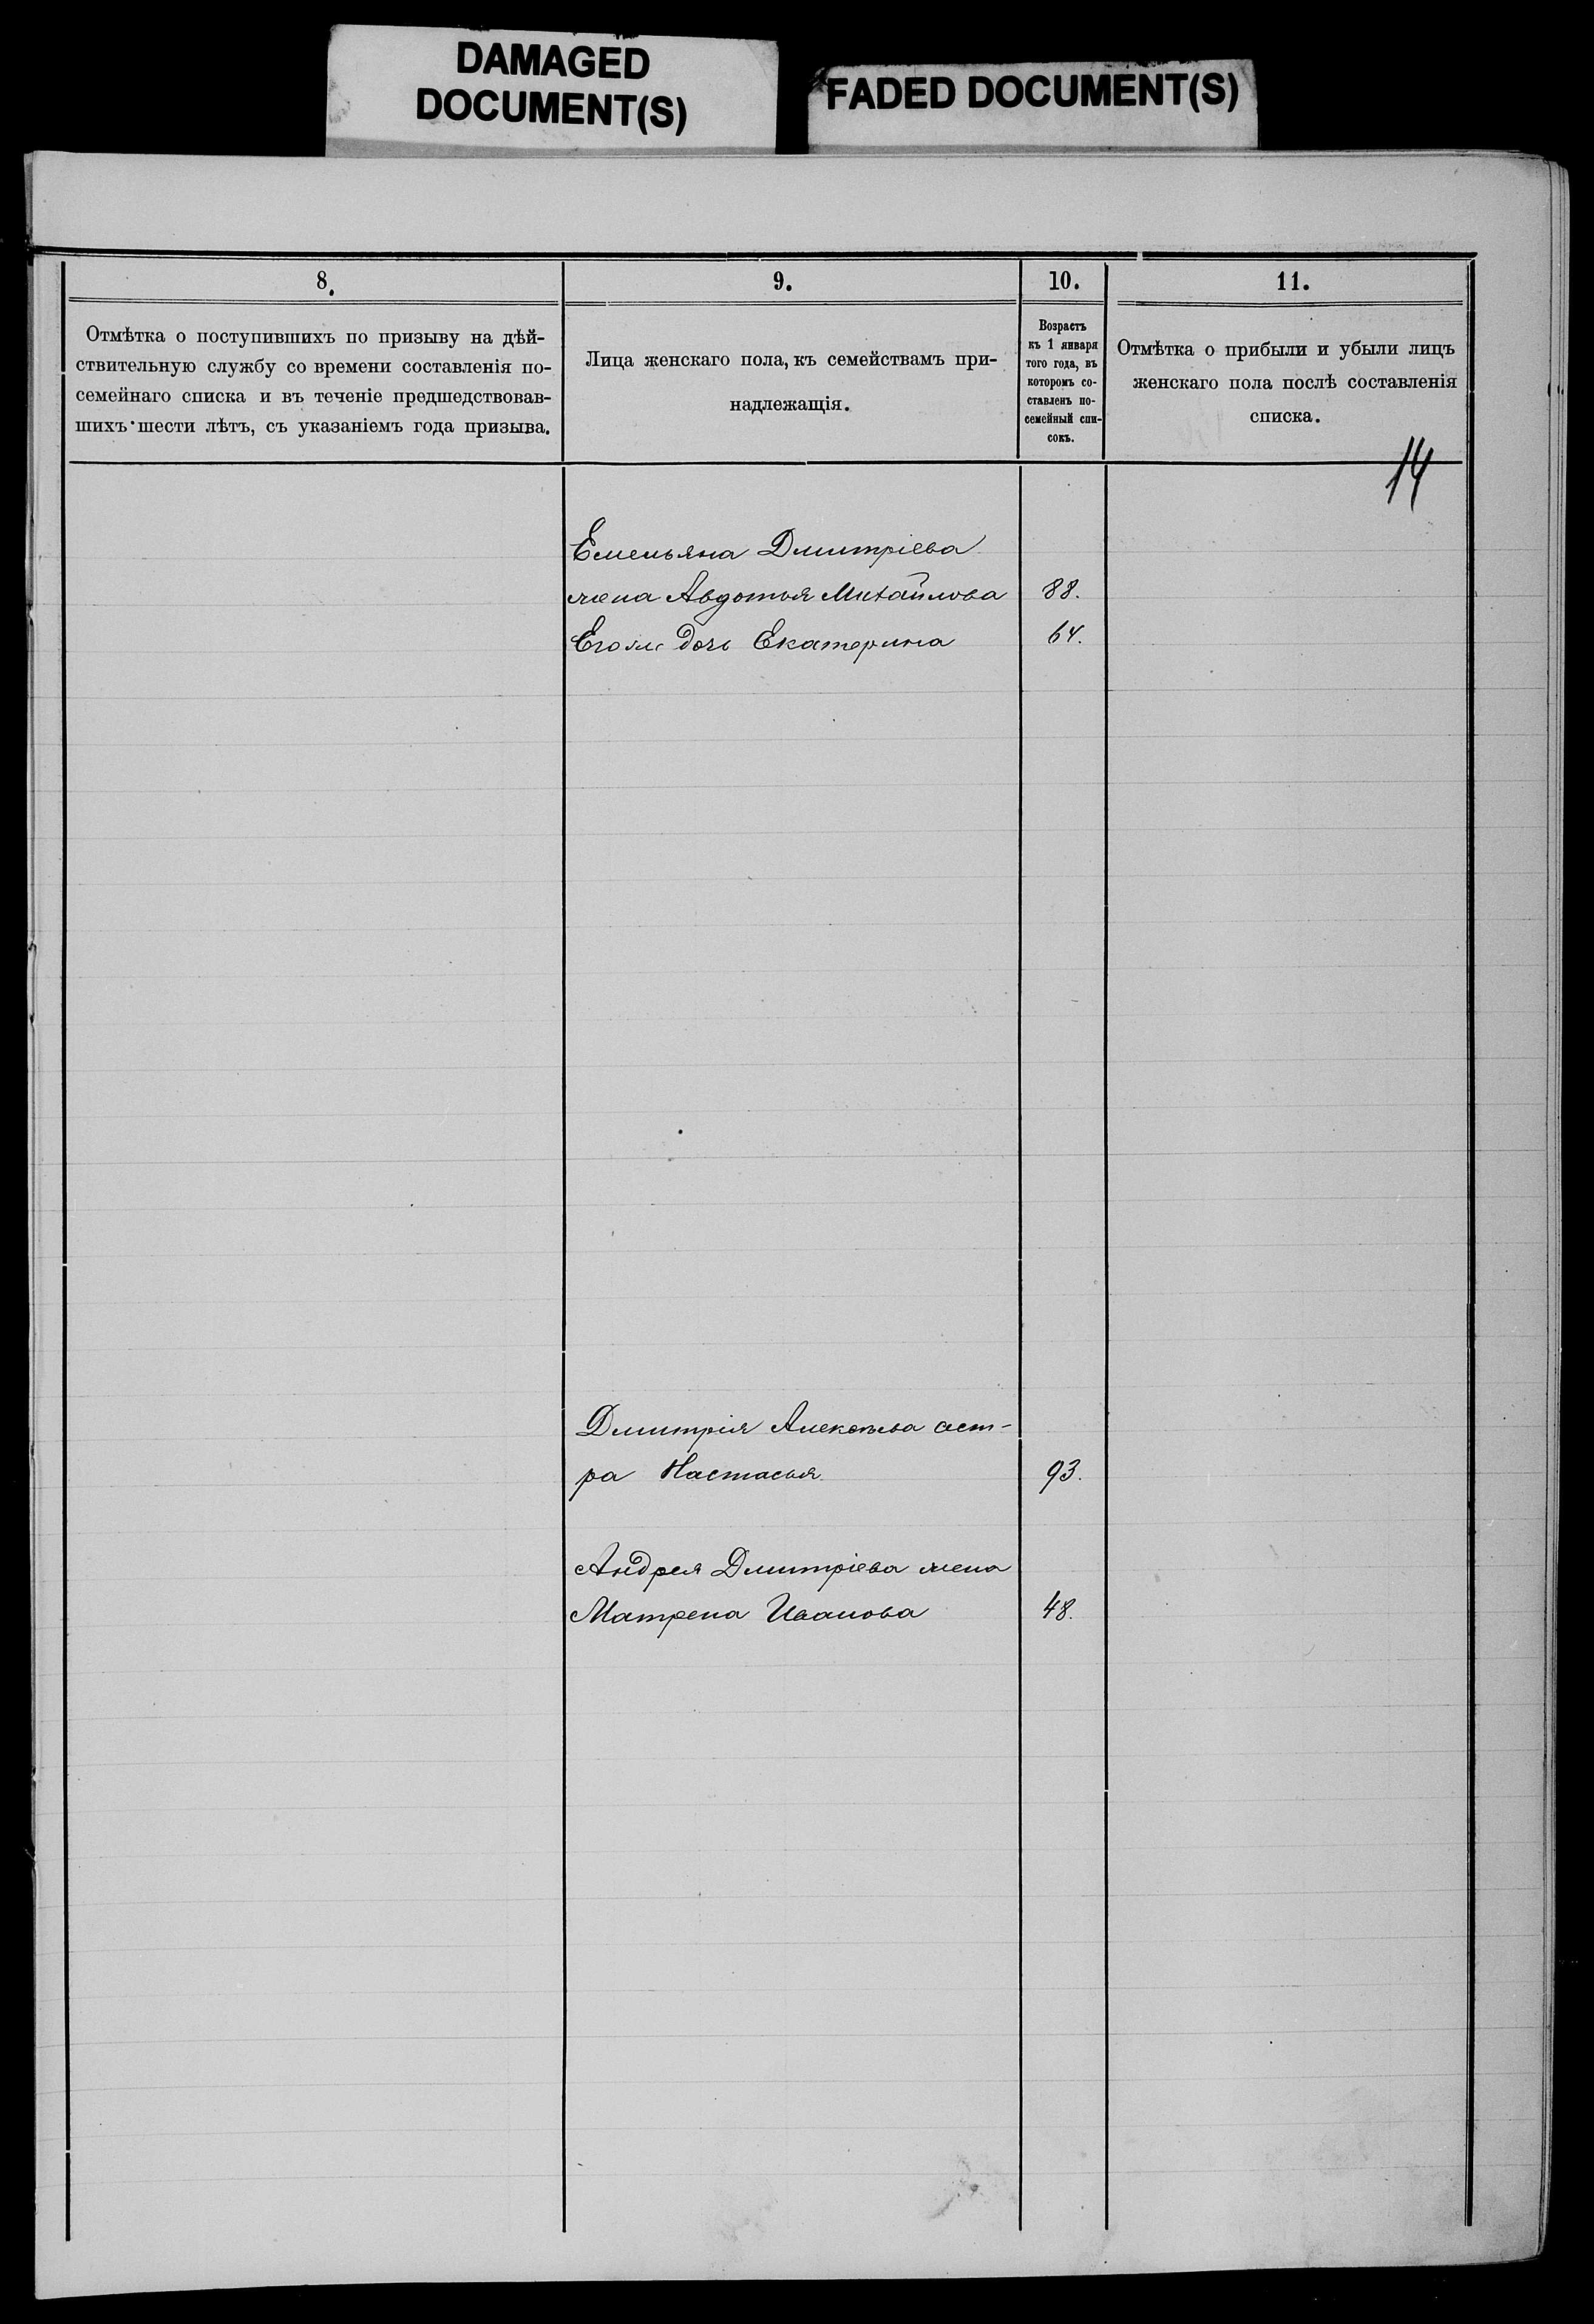 DAMAGED
DOCUMENT(S)
FADED DOCUMENT(S)
8.
9.
10.
11.
Отмѣтка о поступившихъ по призыву на дѣй-
ствительную службу со времени составленія по-
семейнаго списка и въ теченіе предшедствовав-
шихъ шести лѣтъ, съ указаніемъ года призыва.
Лица женскаго пола, къ семействамъ при-
надлежащія.
Возрастъ
къ 1 января
того года, въ
которомъ со-
ставленъ по-
семейный спи-
сокъ.
Отмѣтка о прибыли и убыли лицъ
женскаго пола послѣ составленія
списка.
14
Емельяна Дмитріева
жена Авдотья Михайлова 88.
Его же дочь Екатерина 64.
Дмитрія Алексѣева сест-
ра Настасья 93.
Андрея Дмитріева жена
Матрена Иванова 48.